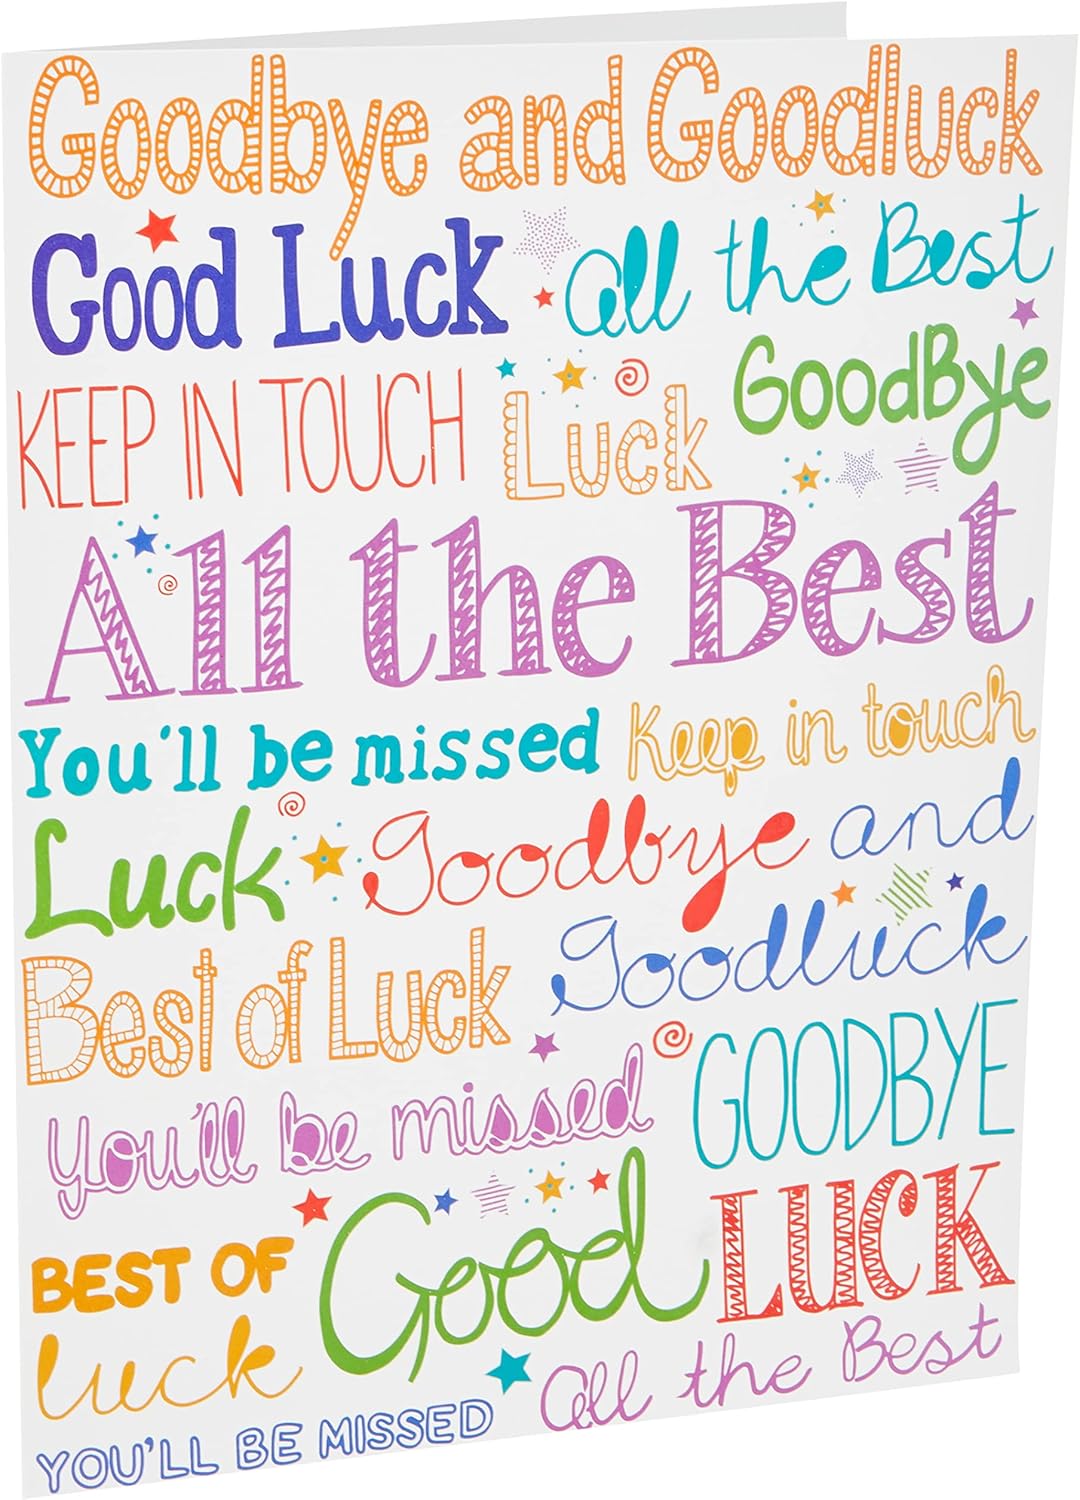 Goodbye and Goodluck
Good Luck
All the Best
KEEP IN TOUCH
Luck
GoodBye
All the Best
You'll be missed
Keep in touch
Luck
Goodbye and
Goodluck
Best of Luck
You'll be missed
GOODBYE
BEST OF
luck
Good
LUCK
All the Best
YOU'LL BE MISSED